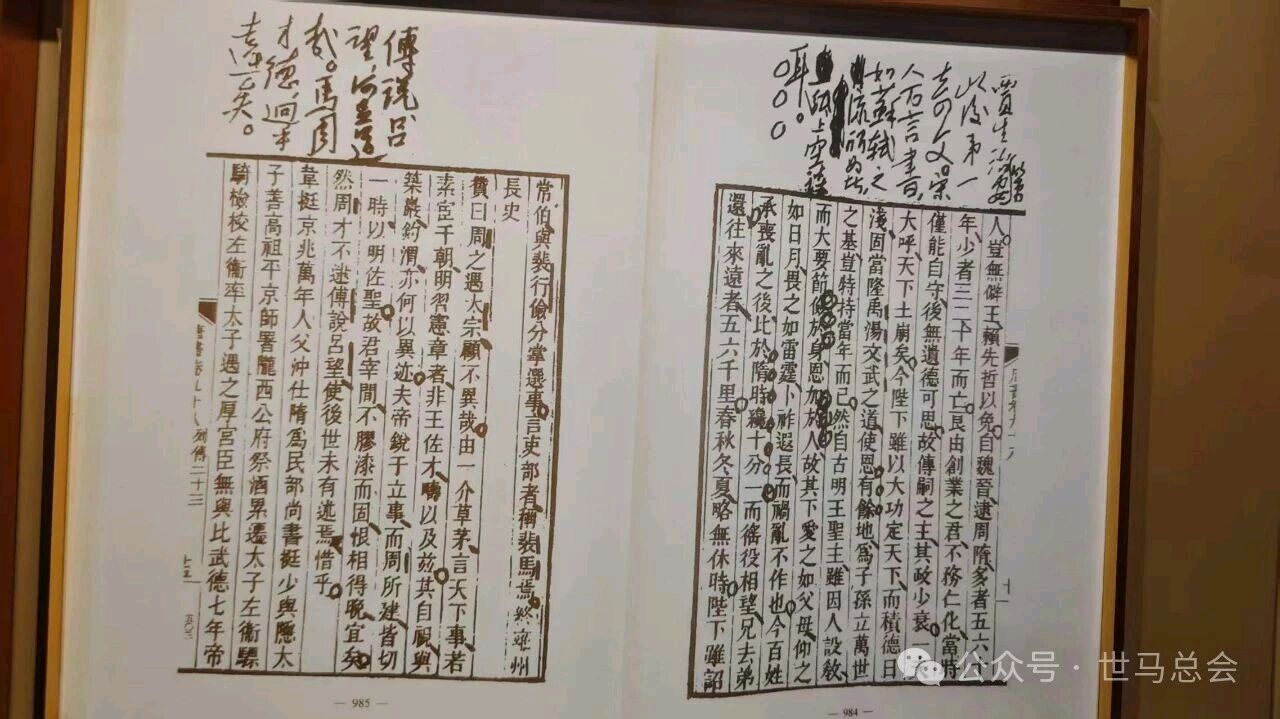 賈生治安策
以後第一
奇文宋
人万言書,
如蘇軾之
流所為者
紙上空談
耳。
人豈無僻王賴先哲以免自魏晉逮周隋多者五六十
年少者三二十年而亡良由創業之君不務仁化當時
僅能自守後無遺德可思故傳嗣之主其政少衰一夫
大呼天下土崩矣今陛下雖以大功定天下而積德日
淺固當隆禹湯文武之道使恩有餘地為子孫立萬世
之基豈特持當年而已然自古明王聖主雖因人設教
而大要節儉於身恩加於人故其下愛之如父母仰之
如日月畏之如雷霆卜祚遐長而禍亂不作也今百姓
承喪亂之後比於隋時纔十分一而徭役相望兄去弟
還往來遠者五六千里春秋冬夏略無休時陛下雖詔
— 984 —
傅説呂
望,何足道
哉。馬周
才德,迥乎
遠矣。
常伯與裴行儉分掌選事言吏部者稱裴馬焉終雍州
長史
贊曰周之遇太宗顧不異哉由一介草茅言天下事若
素宦于朝明習憲章者非王佐才疇以及茲其自視與
築巖釣渭亦何以異迹夫帝銳于立事而周所建皆切
一時以明佐聖故君宰間不膠漆而固恨相得晚宜矣
然周才不逮傅說呂望使後世未有述焉惜乎
韋挺京兆萬年人父沖仕隋為民部尚書挺少與隱太
子善高祖平京師署隴西公府祭酒累遷太子左衛驃
騎檢校左衛率太子遇之厚宮臣無與比武德七年帝
唐書卷九十八列傳二十三
— 985 —
公众号·世马总会